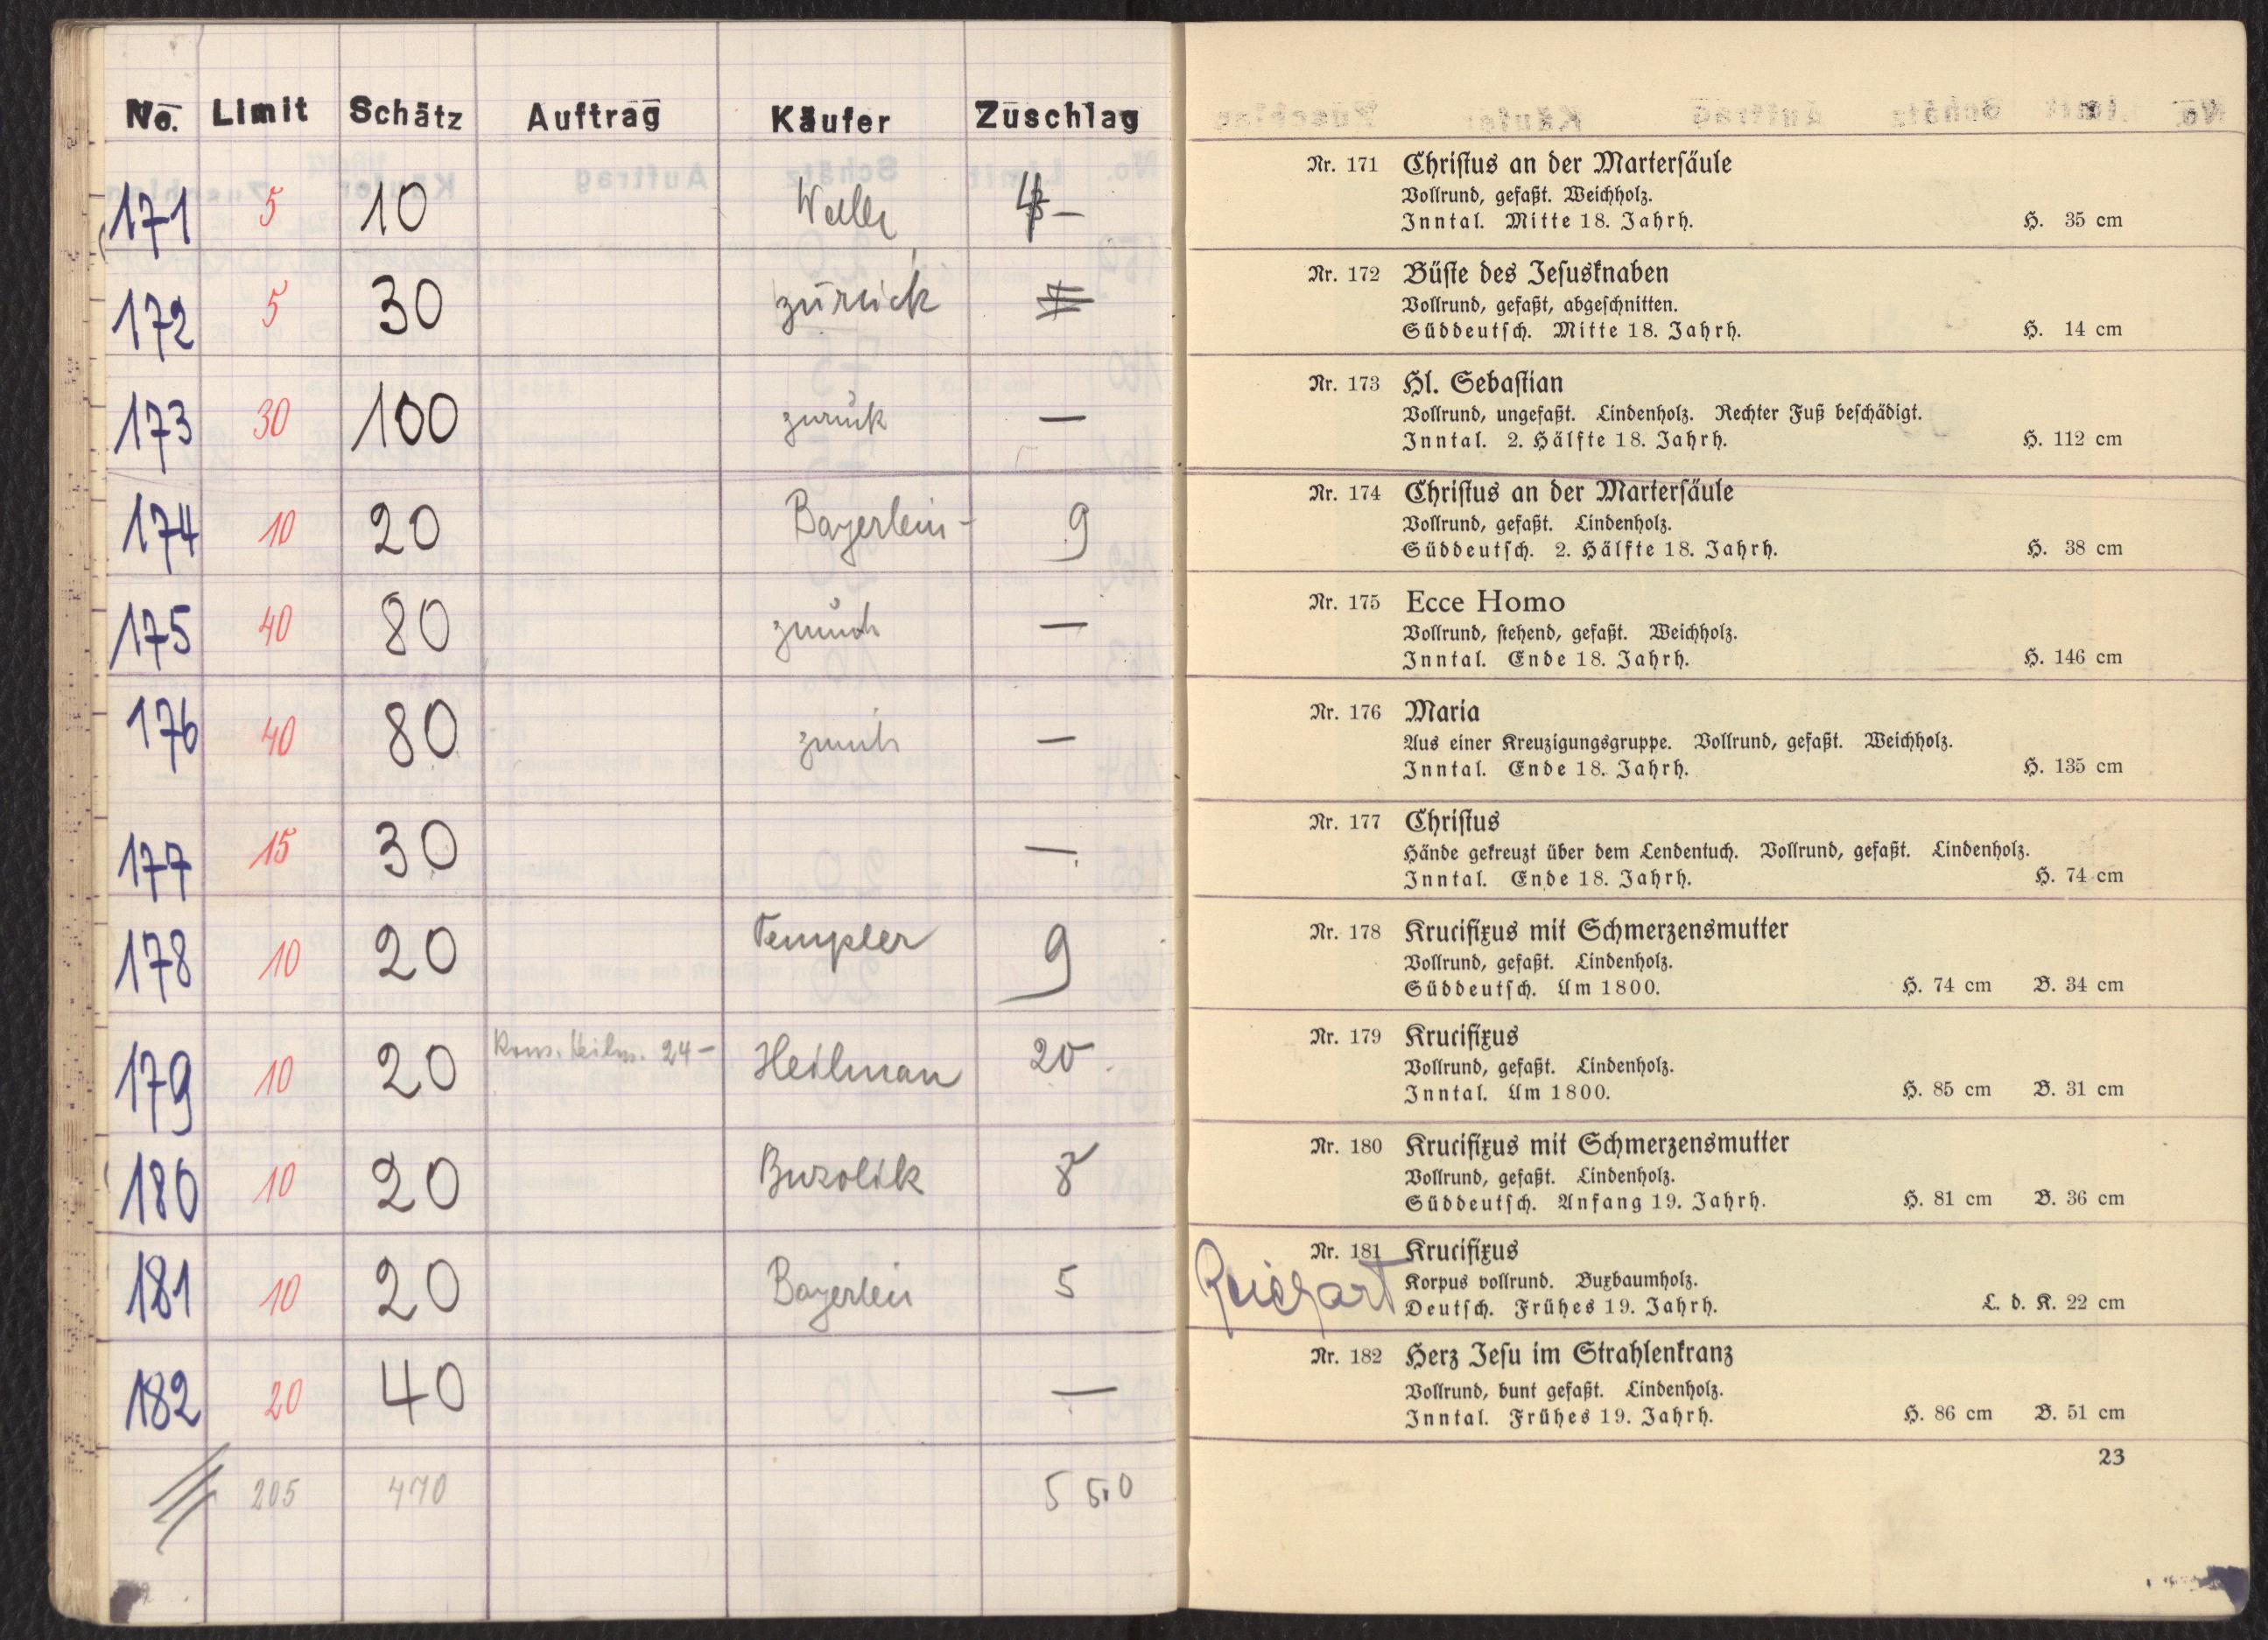 No. Limit Schätz Auftrag Käufer Zuschlag
171 5 10 4 –
172 5 30 zurück
173 30 100 zurück —
174 10 20 Bayerlein - 9
175 40 80 zurück —
176 40 80 zurück —
177 15 30 —
178 10 20 Templer 9
179 10 20 24 – Heilman 20
180 10 20 Buzolik 8
181 10 20 Bayerlein 5
182 20 40 —
205 470 5 5.0
Nr. 171 Christus an der Martersäule
Vollrund, gefaßt. Weichholz.
Inntal. Mitte 18. Jahrh. H. 35 cm
Nr. 172 Büste des Jesusknaben
Vollrund, gefaßt, abgeschnitten.
Süddeutsch. Mitte 18. Jahrh. H. 14 cm
Nr. 173 Hl. Sebastian
Vollrund, ungefaßt. Lindenholz. Rechter Fuß beschädigt.
Inntal. 2. Hälfte 18. Jahrh. H. 112 cm
Nr. 174 Christus an der Martersäule
Vollrund, gefaßt. Lindenholz.
Süddeutsch. 2. Hälfte 18. Jahrh. H. 38 cm
Nr. 175 Ecce Homo
Vollrund, stehend, gefaßt. Weichholz.
Inntal. Ende 18. Jahrh. H. 146 cm
Nr. 176 Maria
Aus einer Kreuzigungsgruppe. Vollrund, gefaßt. Weichholz.
Inntal. Ende 18. Jahrh. H. 135 cm
Nr. 177 Christus
Hände gekreuzt über dem Lendentuch. Vollrund, gefaßt. Lindenholz.
Inntal. Ende 18. Jahrh. H. 74 cm
Nr. 178 Krucifixus mit Schmerzensmutter
Vollrund, gefaßt. Lindenholz.
Süddeutsch. Um 1800. H. 74 cm B. 34 cm
Nr. 179 Krucifixus
Vollrund, gefaßt. Lindenholz.
Inntal. Um 1800. H. 85 cm B. 31 cm
Nr. 180 Krucifixus mit Schmerzensmutter
Vollrund, gefaßt. Lindenholz.
Süddeutsch. Anfang 19. Jahrh. H. 81 cm B. 36 cm
Nr. 181 Krucifixus
Reichart Korpus vollrund. Buxbaumholz.
Deutsch. Frühes 19. Jahrh. L. d. K. 22 cm
Nr. 182 Herz Jesu im Strahlenkranz
Vollrund, bunt gefaßt. Lindenholz.
Inntal. Frühes 19. Jahrh. H. 86 cm B. 51 cm
23